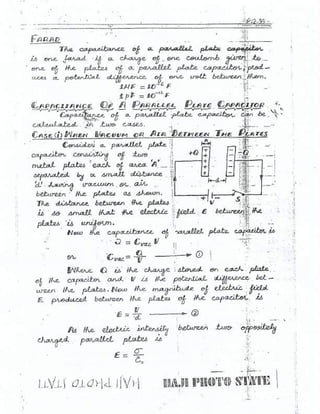 FARAD
The capacitance of a parallel plate capacitor
is one farad if a charge of one coulomb given to
one of the plates of a parallel plate capacitor prod-
uces a potential difference of one volt between them.
1MF = 10⁻⁶ F
1PF = 10⁻¹² F
CAPACITANCE OF A PARALLEL PLATE CAPACITOR
Capacitance of a parallel plate capacitor can be
calculated in two cases.
CASE(i) WHEN VACUUM OR AIR BETWEEN THE PLATES
Consider a parallel plate
capacitor consisting of two
metal plates each of area 'A'
separated by a small distance
'd' having vacuum or air
between the plates as shown.
The distance between the plates
is so small that the electric field E between the
plates is uniform.
+Q
-Q
A
d
V
S
Now the capacitance of parallel plate capacitor is
Q = Cvac V
or Cvac = Q/V → ①
Where Q is the charge stored on each plate
of the capacitor and V is the potential difference bet-
ween the plates. Now the magnitude of electric field
E produced between the plates of the capacitor is
E = V/d → ②
As the electric intensity between two oppositely
charged parallel plates is
E = σ/ε₀
HAJI PHOTO STATE